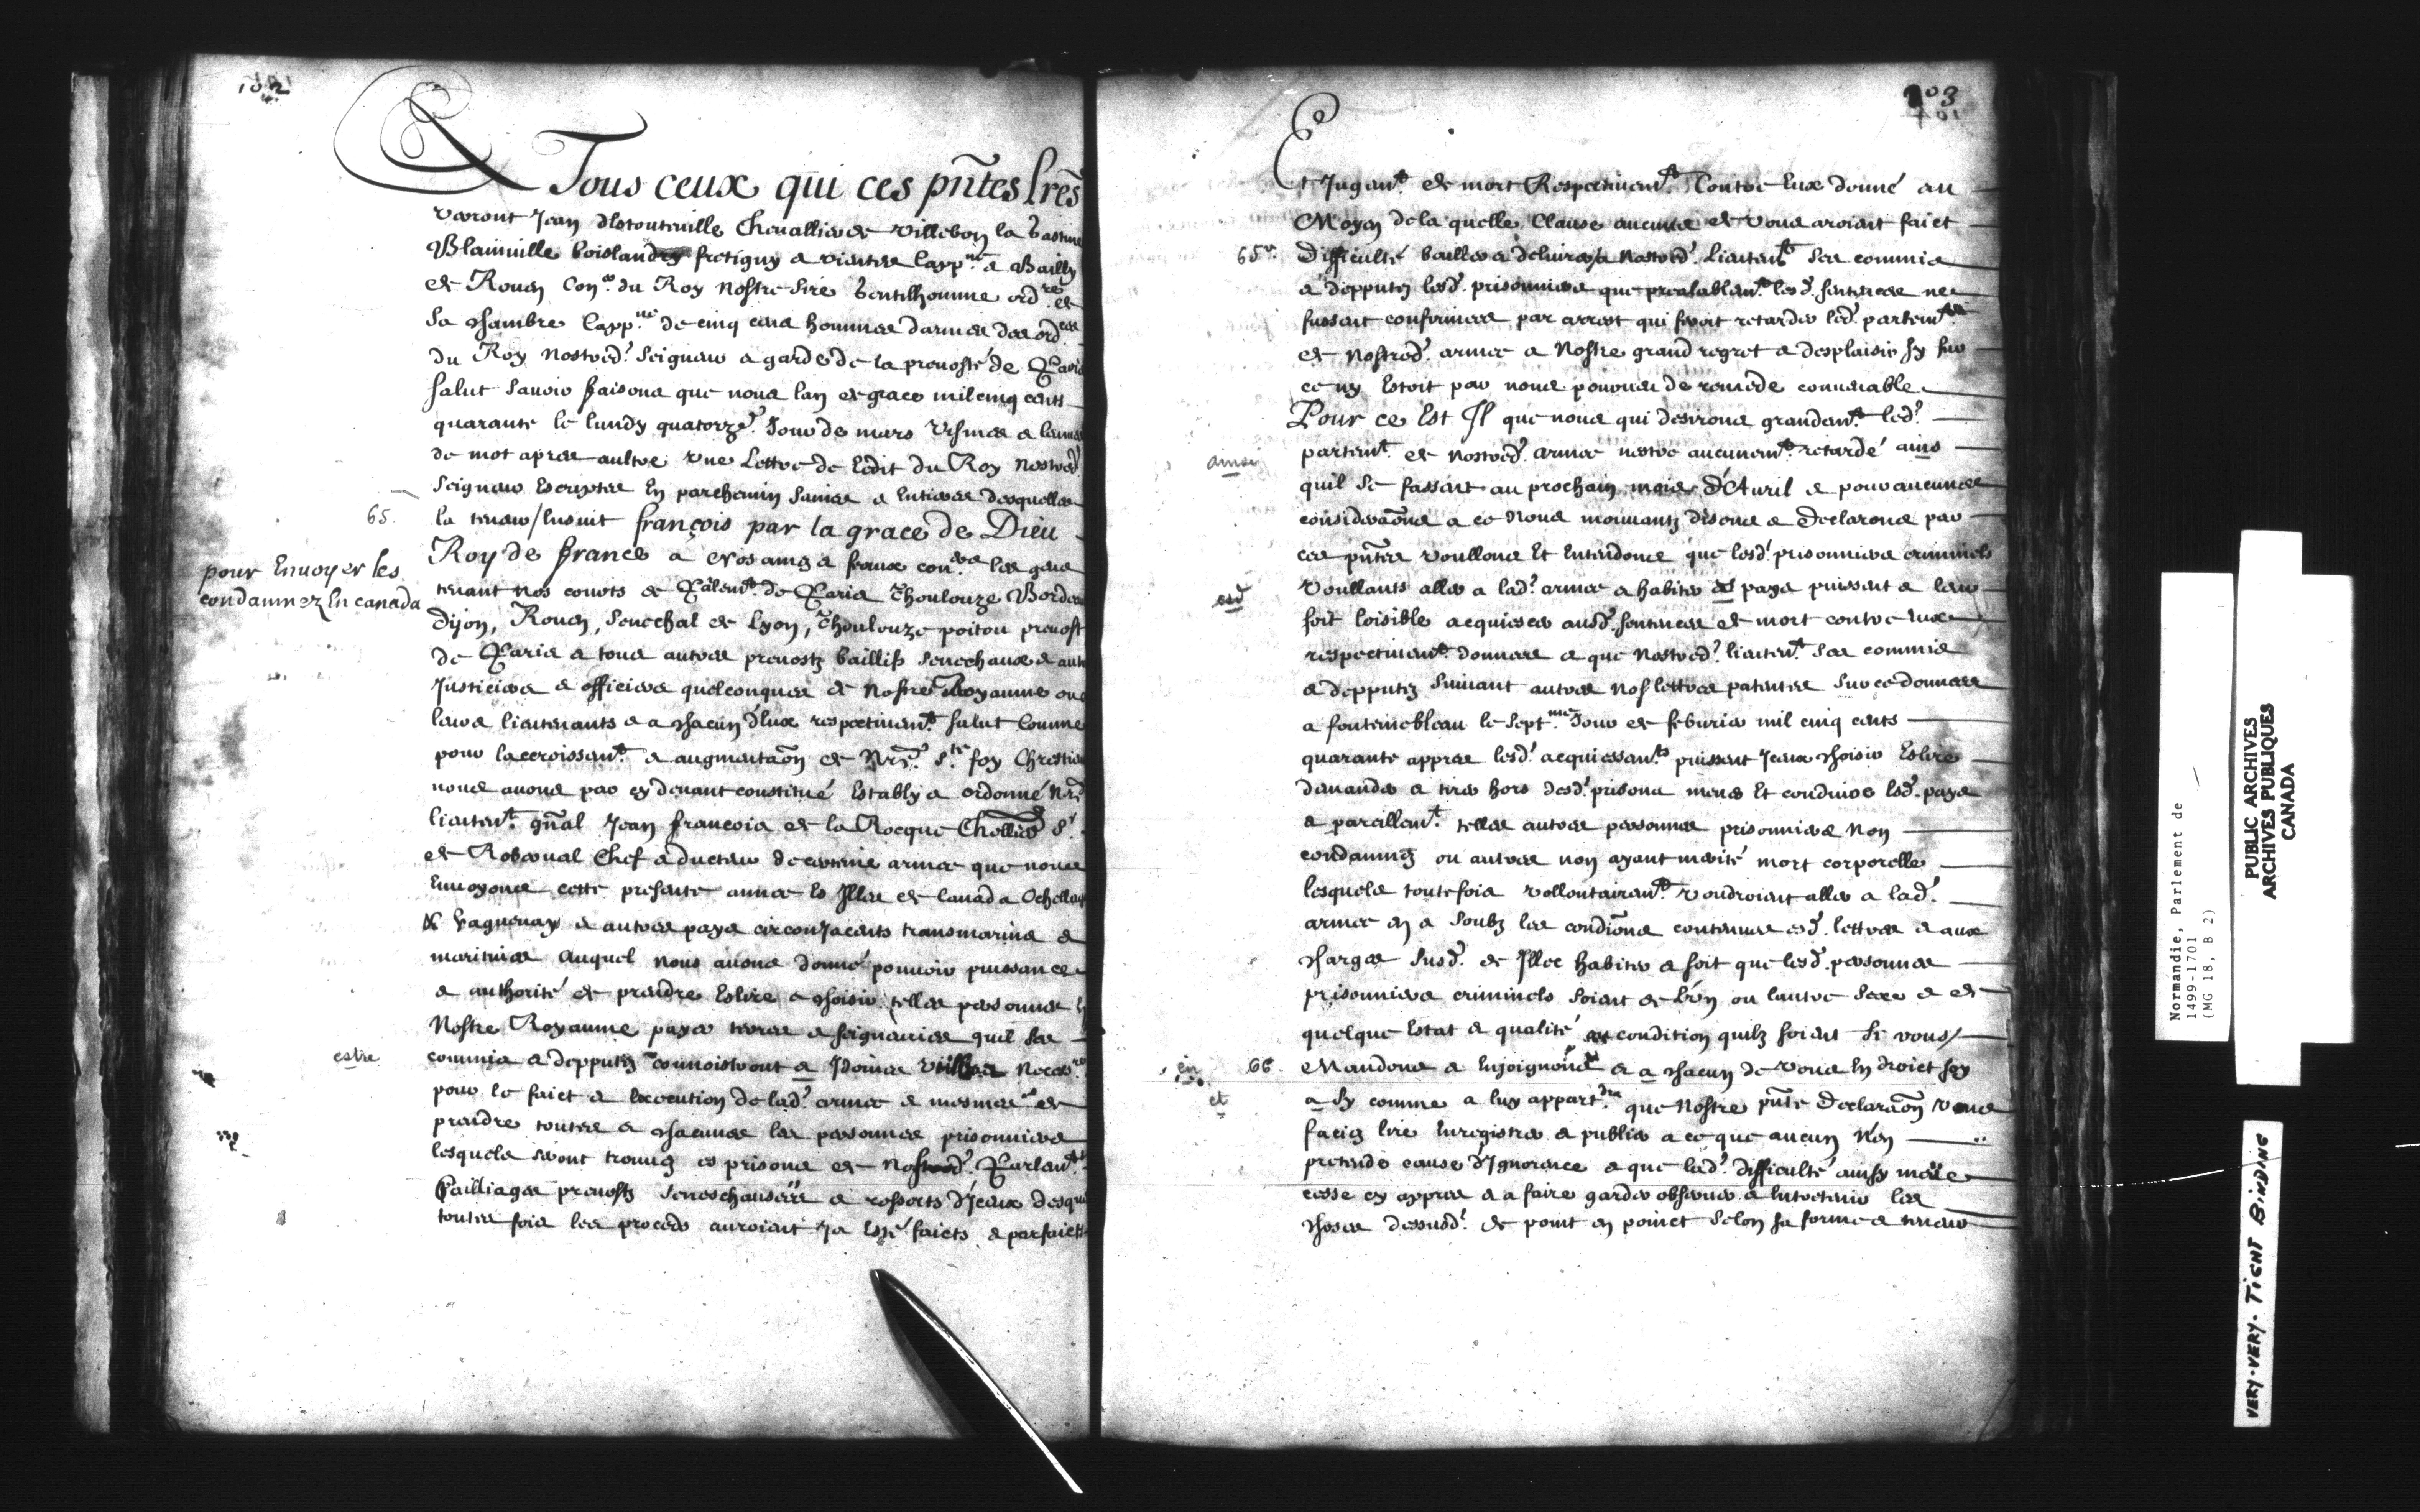 102
A Tous ceux qui ces pñtes lrẽs
verront Jean destouteville Chevallier de Villebon la Gastine
Blainville boislandry fretigny & vientes Cappne & Bailly
de Rouen Coner du Roy nostre sire Gentilhomme ordre de
sa chambre Cappne de cinq cens hommes darmes des ordces
du Roy nostred. Seigneur & garde de la prevosté de Paris
salut savoir faisons que nous lan de grace mil cinq cents
quarante le lundy quatorze. Jour de mars vismes & leumes
de mot apres aultre une Lettre de Edit du Roy nostred.
Seigneur Escriptes En parchemin saines & Entieres desquelles
65.
la teneur / Ensuit françois par la grace de Dieu
pour Envoyer les
condamnez En canada
Roy de france a nos amez & feaux coners les gens
tenant nos courts de Parlemt. de Paris Thoulouze Bordeaux
Dijon, Rouen, Senechal de Lyon, Thoulouze poitou prevost
de Paris & tous autres prevosts baillifs Senechaux & autres
Justiciers & officiers quelconques de nostre Royaume ou
leurs lieutenants & a chacun d'Eux respectivemt. salut Comme
pour laccroissemt. & augmentaõn de Nrẽ. Ste. foy Chrestienne
nous avons par cy devant constitué Estably & ordonné Nrẽ
lieutent. gñal Jean françois de la Rocque Chellier Sr.
de Roberval Chef & ducteur de certaine armee que nous
Envoyons cette presente annee Es Isles de Canada Ochellaga
& Saguenay & autres pays circonjacents transmarins &
maritimes auquel nous avons donné pouvoir puissance
& authorité de prendre Eslire & choisir telles personnes En
Nostre Royaume pays terres & seigneuries quil ses
estre
commis & depputez connoistront & Idoines utilles necesres
pour le faict & Execution de lad. armee & mesmes de
prendre toutes & chacunes les personnes prisonnieres
lesquels seront trouvez es prisons de nosd. Parlemts.
Bailliages prevosts seneschaussées & ressorts d'Jceux desquels
toutes fois les procéds auroient Ja Esté faicts & parfaicts
103
Et Jugemt. de mort Respectivemt. Contre Eux donné au
Moyen de la quelle Clause aucuns de vous aroient faict
65v.
difficulté bailler & delivrer a nostred. Lieutent. ses commis
& depputez lesd. prisonniers que prealablemt. lesd. sentences ne
fussent confirmees par arrest qui seroit retarder led. partemt.
de nostred. armee a Nostre grand regret & desplaisir sy sur
ce ny Estoit par nous pourveu de remede convenable
Pour ce Est Il que nous qui desirons grandemt. led.
ainsi
partemt. de nostred. armee nestre aucunemt. retardé ains
quil se fassent au prochain mois d'Avril & pour aucunes
consideraõns a ce nous mouvantz disons & declarons par
ces pñtes voullons Et Entendons que lesd. prisonniers criminels
esd
voullants aller a lad. armee & habiter es pays puissent & leur
soit loisible acquiescer ausd. sentences de mort contre eux
respectivemt. donnees & que Nostred. lieutent. ses commis
& depputez suivant autres nos lettres patentes sur ce donnees
a fontenebleau le septme Jour de febvrier mil cinq cents
quarante appres lesd. acquiessemts. puissent Jceux choisir Eslire
demander & tirer hors desd. prisons mener Et conduire Esd. pays
& pareillemt. telles autres personnes prisonnieres non
condamnez ou autres non ayant merité mort corporelle
lesquels toutefois vollontairemt. voudroient aller a lad.
armee en & soubz les condiõns contenues esd. lettres & aux
charges susd. de Illec habiter & soit que lesd. personnes
prisonniers criminels soient de L'un ou lautre sexe & de
quelque Estat & qualité & condition quilz soient Si vous /
en
66.
Mandons & Enjoignons & a chacun de vous En droict soy
et
& sy comme a luy appartdra que nostre pñte declaraõn vous
faciez lire Enregistrer & publier a ce que aucun n'en
pretende cause d'Ignorance & que lad. difficulté ainsy meüe
cesse cy appres & a faire garder observer & Entretenir les
choses dessusd. de point en poinct selon sa forme & teneur
Normandie, Parlement de
1499-1701
(MG 18, B 2)
PUBLIC ARCHIVES
ARCHIVES PUBLIQUES
CANADA
VERY-VERY-TIGHT BINDING